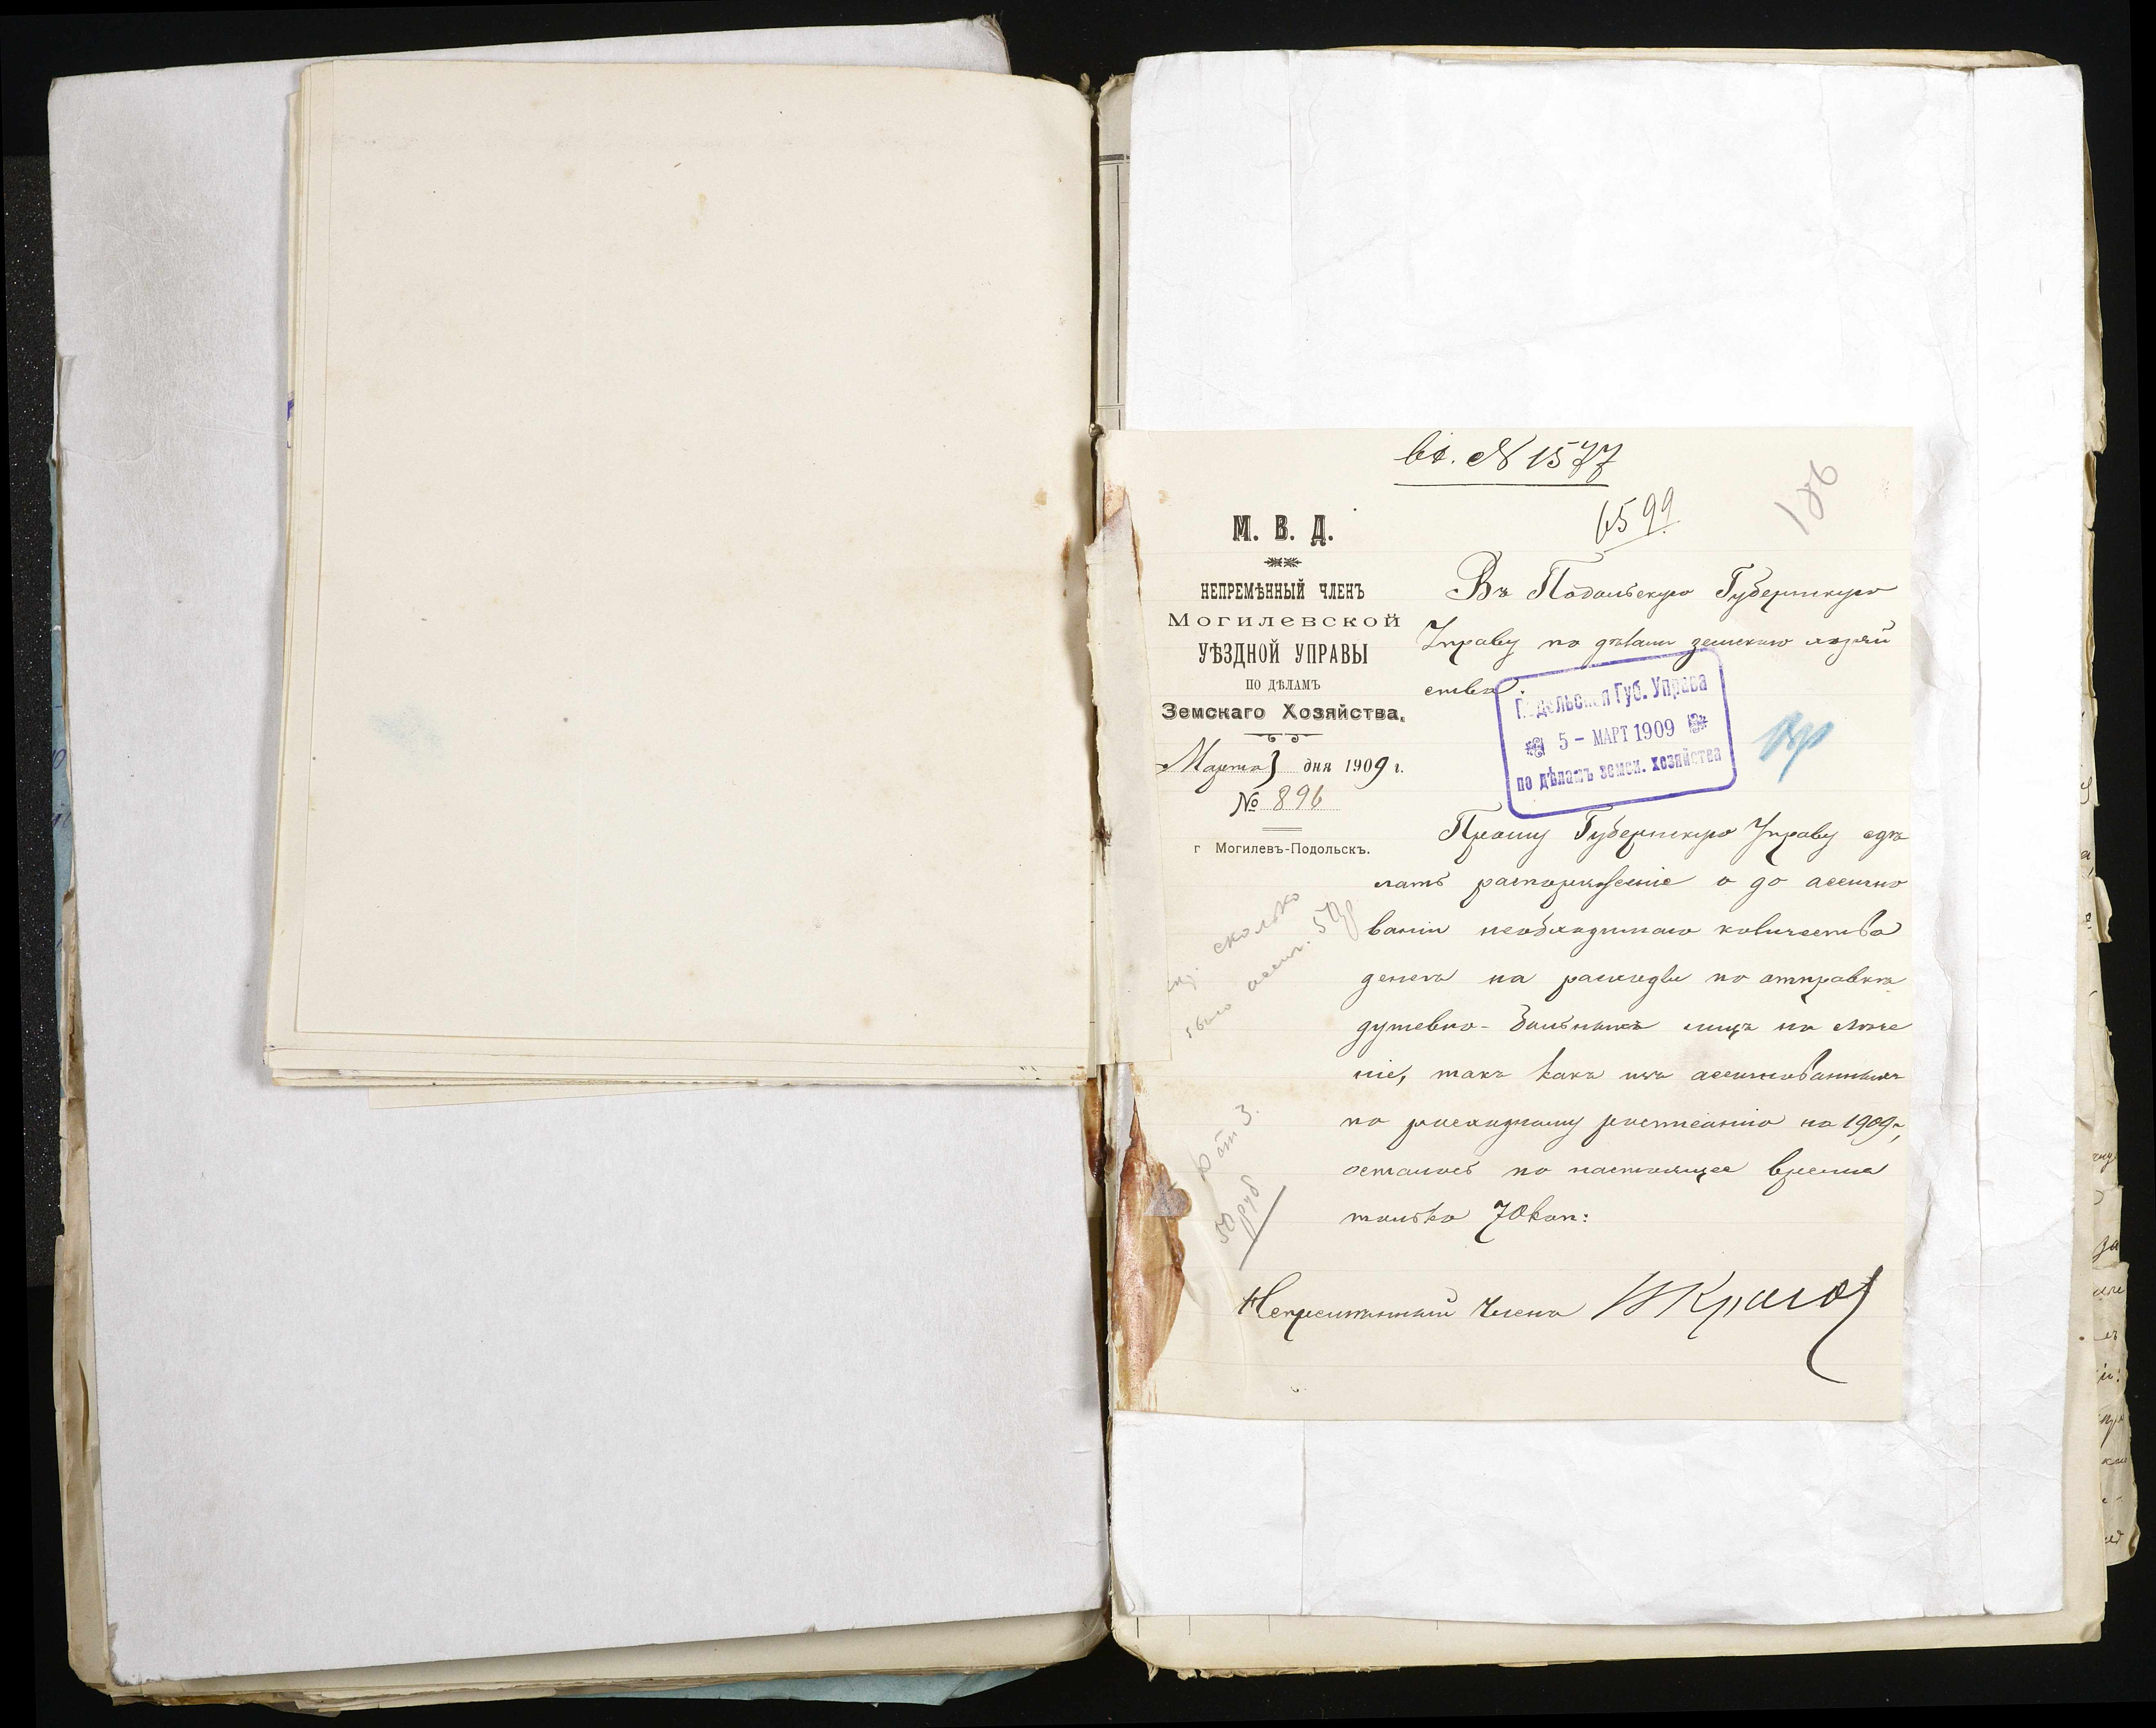 вх. № 1577
6599
186
М. В. Д.
НЕПРЕМѢННЫЙ ЧЛЕНЪ
Могилевской
УѢЗДНОЙ УПРАВЫ
ПО ДѢЛАМЪ
Земскаго Хозяйства,
Марта 3 дня 1909 г.
№ 896
г Могилевъ-Подольскъ.
Въ Подольскую Губернскую
Управу по дѣламъ земскаго хозяй
ства.
Подольская Губ. Управа
5 - МАРТ 1909
по дѣламъ земск. хозяйства
Прошу Губернскую Управу сдѣ
лать распоряженіе о до ассигно
ваніи необходимаго количества
денегъ на расходы по отправкѣ
душевно-больныхъ лицъ на лѣче
ніе, такъ какъ изъ ассигнованныхъ
по расходному росписанію на 1909 г,
осталось по настоящее время
только 70 коп:
Непремѣнный Членъ
сколько
было ассиг. 50р
50 руб